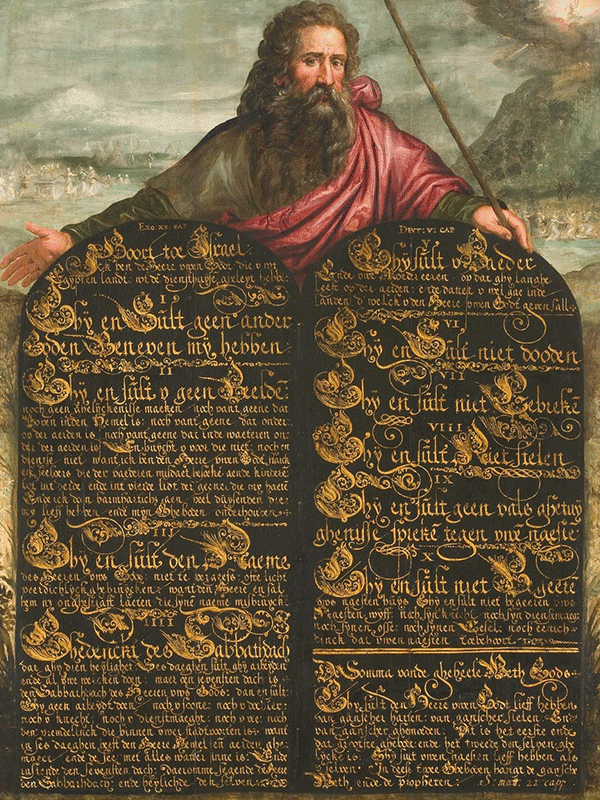 Exo: xx: cap
Hoort toe Israel:
Ick ben de Heere uwen God die v wt
Egypten lande: wt de diensthuyse
I
Ghy en Sult geen ander
Goden Beneven my hebben:
II
Ghy en sult v geen Beelde
noch geen gelijckenisse maecken noch van t geene dat
Boven inden Hemel is: noch van t geene dat onder
op der aerden is: noch van t geene dat inde waeteren
der aerden is: En buycht v voor die niet: noch en
dienste niet want ick ben den Heere uwen God
III
Ghy en sult den Naeme
des Heeren uws Gods niet te vergeefs
want den Heere en sal
hem niet laeten die syne naeme misbruyckt
IIII
Ghedenckt des Sabbathdach
dat ghy dien heylight: Ses daeghen sult ghy arbeyden
ende al uwe wercken doen: maer den sevensten dach is
den Sabbathdach des Heeren uws Gods: dan en sult
Ghy geen arbeyt doen: noch v soone: noch v dochter:
noch v knecht: noch v dienstmaeght: noch v vee: noch
den vremdelinck die binnen uwer stadt poorten is: want
in ses daeghen heeft den Heere Hemel en aerden ghe-
maeckt ende de see: met alles watter inne is: Ende
ruste den sevensten dach: daeromme segende de Heere
den Sabbathdach: ende heylichde den selven
Deut: v: cap
Ghy sult v Vader
Ende uwe Moeder eeren op dat ghy langhe
leeft op der aerden: ende dattet v wel gae inde
landen d welck v den Heere uwen God geven sall
VI
Ghy en Sult niet dooden
VII
Ghy en sult niet Gebreke
VIII
Ghy en sult Niet stelen
IX
Ghy en sult geen vals ghetuy
ghenisse spreke tegen uwe naeste
X
Ghy en sult niet Begeere
uws naesten huys Ghy en sult niet begeeren uws
naesten wyff noch syn knecht: noch syn dienstmaeght
noch synen osse: noch synen Esel: noch
dinck dat uwen naesten toebehort
De Somma vande gheheele Weth Gods
Ghy sult den Heere uwen God lieff hebben
van gansscher harten: van gansscher sielen: Ende
van gansscher ghemoeden: Dit is het eerste ende
dat grootste ghebot: ende het tweede den selven ghe-
lyck is: Ghy sult uwen naesten lieff hebben als
v selven: In deese twee Gheboden hangt de gansche
Weth, ende de propheten: S: matt: 22 capp